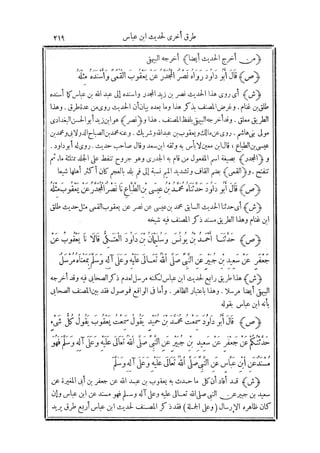 طرق أخرى لحديث ابن عباس ٢١٩
﴿من أخرج الحديث أيضا﴾ أخرجه البيهقي
﴿ص﴾ قَالَ أَبُو دَاوُدَ رَوَاهُ نَصْرٌ الْمُجَدَّرُ عَنْ يَعْقُوبَ الْقُمِّيِّ وَأَسْنَدَهُ مِثْلَهُ
﴿ش﴾ أى روى هذا الحديث نصر بن زيد المجدر وأسنده إلى عبد الله بن عباس كما أسنده
طلق بن غنام. وغرض المصنف بذكر هذا وما بعده بيان أن الحديث روى من عدة طرق. وهذا
الطريق معلق. وقد أخرجه البيهقي بلفظ المصنف. هذا و﴿نصر﴾ هو ابن زيد أبو الحسن البغدادى
مولى بنى هاشم. روى عن مالك ويعقوب بن عبد الله وشريك. وعنه محمد بن الصباح الدولابى ومحمد بن
عيسى بن الطباع. قال ابن معين لابأس به وثقه ابن سعد وقال صاحب حديث. روى له أبو داود.
و﴿المجدر﴾ بصيغة اسم المفعول من قام به الجدرى وهو جروح تنتفط على الجلد ممتلئة ماء ثم
تنفتح. و﴿القمى﴾ بضم القاف وتشديد الميم نسبة إلى قم بلد بالعجم كان أكثر أهلها شيعا
﴿ص﴾ قَالَ أَبُو دَاوُدَ حَدَّثَنَاهُ مُحَمَّدُ بْنُ عِيسَى بْنِ الطَّبَّاعِ نَا نَصْرٌ الْمُجَدَّرُ عَنْ يَعْقُوبَ مِثْلَهُ
﴿ش﴾ أى حدثنا الحديث السابق محمد بن عيسى عن نصر عن يعقوب القمى مثل حديث طلق
ابن غنام وهذا الطريق مسند ذكر المصنف فيه شيخه
﴿ص﴾ حَدَّثَنَا أَحْمَدُ بْنُ يُونُسَ وَسُلَيْمَانُ بْنُ دَاوُدَ الْعَتَكِيُّ قَالَا نَا يَعْقُوبُ عَنْ
جَعْفَرٍ عَنْ سَعِيدِ بْنِ جُبَيْرٍ عَنِ النَّبِيِّ صَلَّى اللهُ تَعَالَى عَلَيْهِ وَعَلَى آلِهِ وَسَلَّمَ بِمَعْنَاهُ مُرْسَلٌ
﴿ش﴾ هذا طريق رابع لحديث ابن عباس لكنه مرسل لعدم ذكر الصحابى فيه وقد أخرجه
البيهقي أيضا مرسلا. وهذا باعتبار الظاهر. وأما في الواقع فموصول فقد بين المصنف الصحابى
بأنه ابن عباس بقوله
﴿ص﴾ قَالَ أَبُو دَاوُدَ سَمِعْتُ مُحَمَّدَ بْنَ حُمَيْدٍ يَقُولُ سَمِعْتُ يَعْقُوبَ يَقُولُ كُلُّ شَيْءٍ
حَدَّثْتُكُمْ عَنْ جَعْفَرٍ عَنْ سَعِيدِ بْنِ جُبَيْرٍ عَنِ النَّبِيِّ صَلَّى اللهُ تَعَالَى عَلَيْهِ وَعَلَى آلِهِ وَسَلَّمَ فَهُوَ
مُسْنَدٌ عَنِ ابْنِ عَبَّاسٍ عَنِ النَّبِيِّ صَلَّى اللهُ تَعَالَى عَلَيْهِ وَعَلَى آلِهِ وَسَلَّمَ
﴿ش﴾ قد أفاد أن كل ما حدث به يعقوب بن عبد الله عن جعفر بن أبى المغيرة عن
سعيد بن جبير عن النبى صلى الله تعالى عليه وعلى آله وسلم فهو مسند عن ابن عباس وإن
كان ظاهره الإرسال ﴿وعلى الجملة﴾ فقد ذكر المصنف لحديث ابن عباس أربع طرق يريد